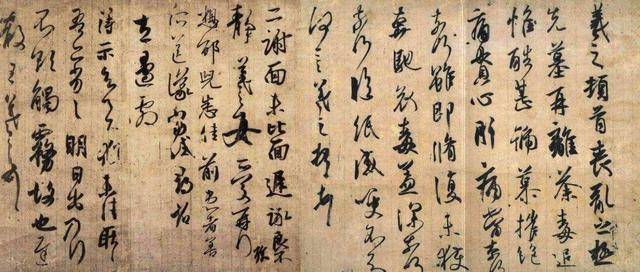 羲之頓首喪亂之極
先墓再離荼毒追
惟酷甚號慕摧絶
痛貫心肝痛當奈何
奈何雖即脩復未獲
奔馳哀毒益深奈何
奈何臨紙感哽不知
何言羲之頓首頓首
二謝面未比面遲詠良
靜羲之女愛再拜
想邰兒悉佳前患者善
所送議當試尋省
左邊劇
得示知足下猶未佳耿
耿吾亦劣劣明日出乃行
不欲觸霧故也遲
散王羲之頓首